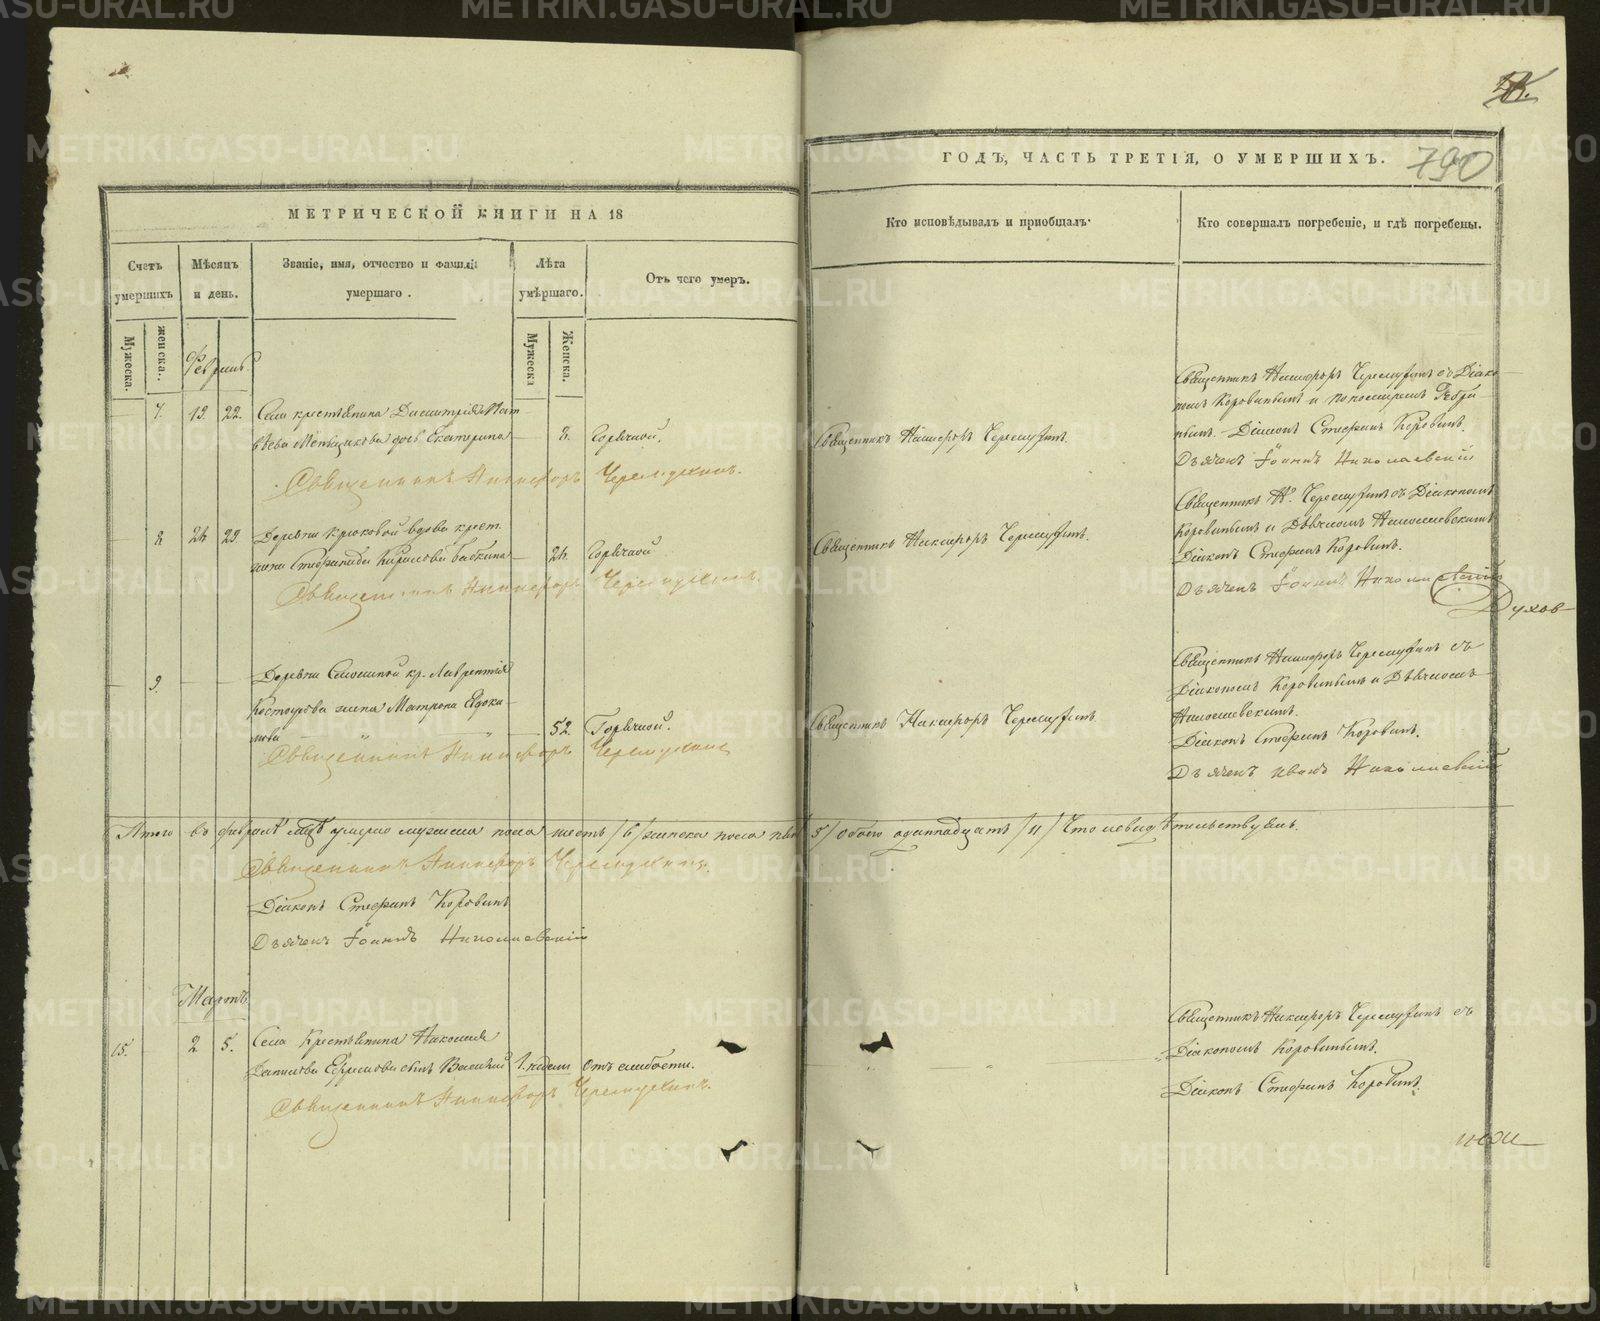 МЕТРИЧЕСКОЙ КНИГИ НА 18
Счетъ умершихъ
Мужеска.
женска.
Мѣсяцъ и день.
Званіе, имя, отчество и фамилія умершаго.
Лѣта умѣршаго.
Мужеска
Женска.
Отъ чего умеръ.
Февраль.
7. 19. 22. Села крестьянина Димитрія Мат
вѣева дочь Екатерина 8. Горячкой.
Священникъ Никифоръ Черемухинъ.
8 24 29 Деревни Крюковой вдова крест.
Стефанида Кирилова Бабкина 24. Горячкой
Священникъ Никифоръ Черемухинъ.
9. Деревни кр. Лаврентія
жена Матрона Евдоки-
мова 52. Горячкой.
Священникъ Никифоръ Черемухинъ
Итого въ февралѣ мцѣ умерло мужеска пола шесть /6/ женска пола пять /5/ обоего одиннадцать /11/ Что свидѣтельствуемъ.
Священникъ Никифоръ Черемухинъ.
Діаконъ Стефанъ Коровинъ
Дьячекъ Іоаннъ Николаевскій
Мартъ
15. 2 5. Села Крестьянина
Ефремова сынъ Василій 1. недели Отъ слабости.
Священникъ Никифоръ Черемухинъ.
ГОДЪ, ЧАСТЬ ТРЕТІЯ, О УМЕРШИХЪ.
790
Кто исповѣдывалъ и приобщалъ.
Кто совершалъ погребеніе, и гдѣ погребены.
Священникъ Никифоръ Черемухинъ.
Священникъ Никифоръ Черемухинъ съ Діако-
номъ Коровинымъ и
Діаконъ Стефанъ Коровинъ.
Дьячекъ Іоаннъ Николаевскій
Священникъ Никифоръ Черемухинъ.
Священникъ Н. Черемухинъ съ Діакономъ
Коровинымъ и Дьячкомъ Николаевскимъ
Діаконъ Стефанъ Коровинъ.
Дьячекъ Іоаннъ Николаевскій
Духов
Священникъ Никифоръ Черемухинъ
Священникъ Никифоръ Черемухинъ съ
Діакономъ Коровинымъ и Дьячкомъ
Николаевскимъ.
Діаконъ Стефанъ Коровинъ.
Дьячекъ Иванъ Николаевскій
Священникъ Никифоръ Черемухинъ съ
Діакономъ Коровинымъ.
Діаконъ Стефанъ Коровинъ.
METRIKI.GASO-URAL.RU